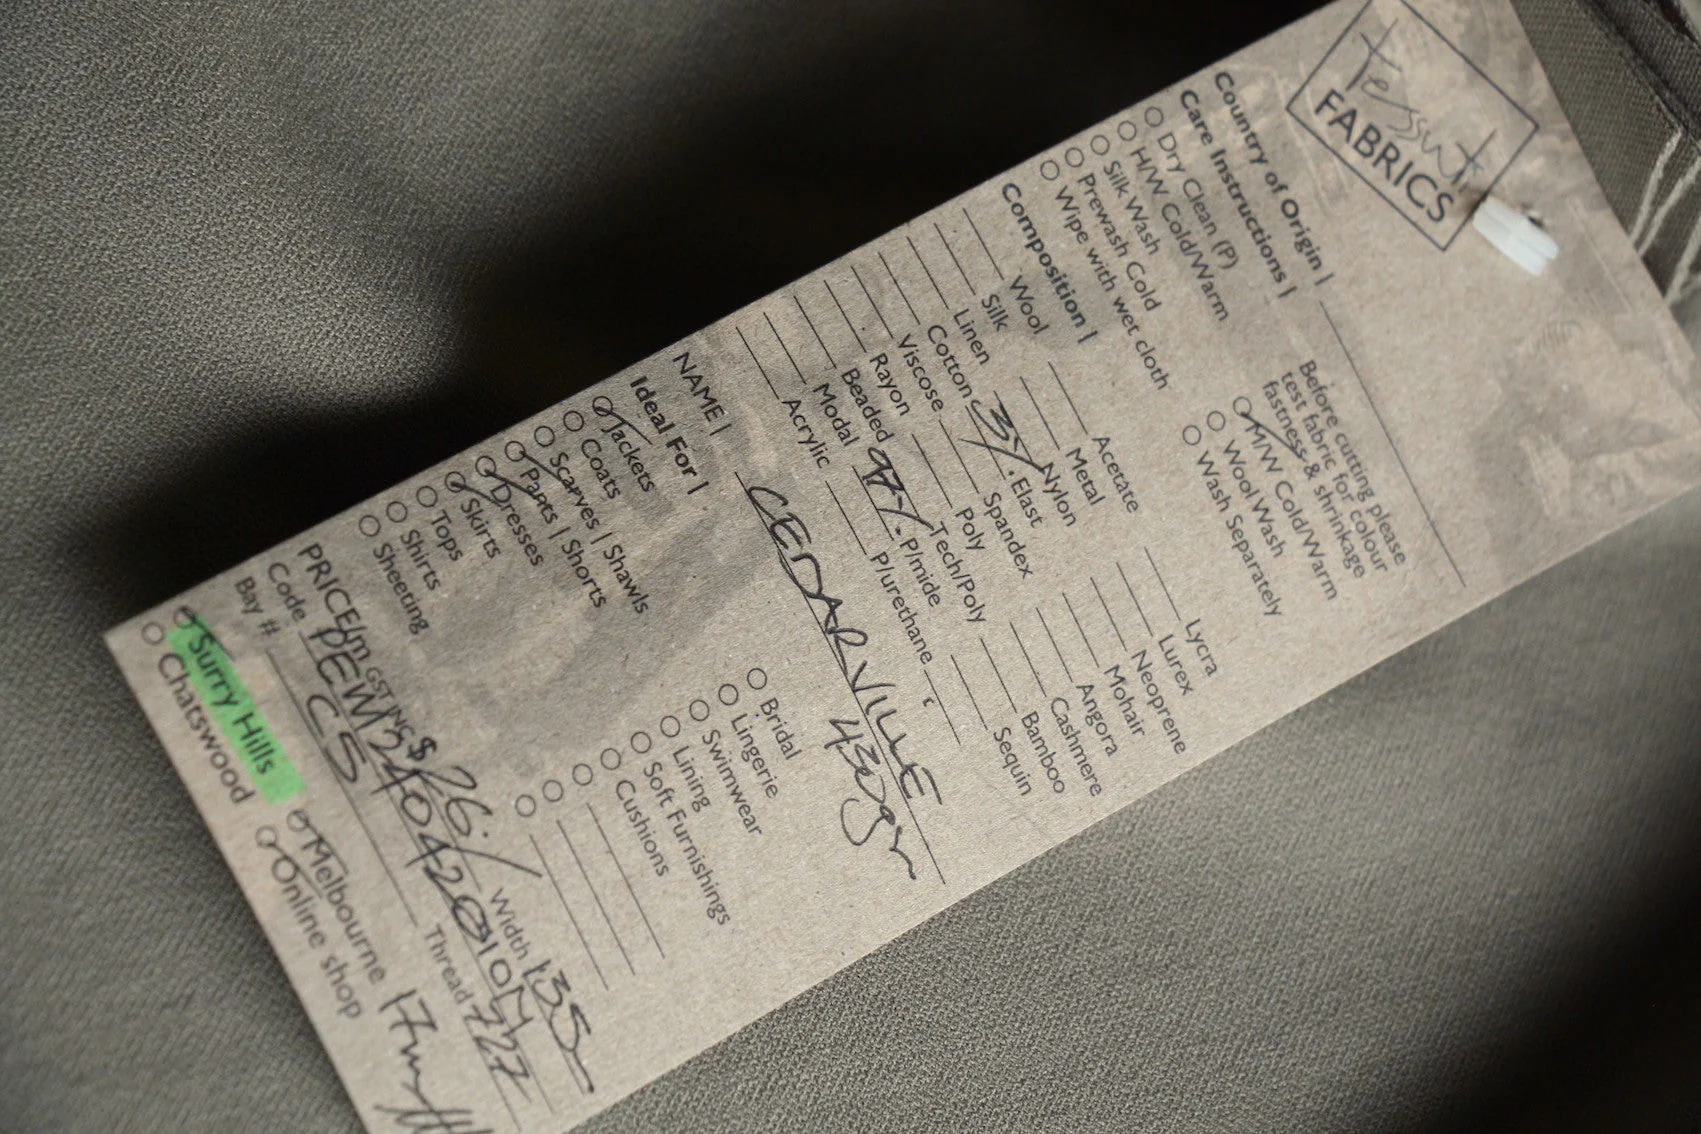 tessuti
FABRICS
Country of Origin |
Care Instructions |
Dry Clean (P)
H/W Cold/Warm
Silk Wash
Prewash Cold
Wipe with wet cloth
Before cutting please
test fabric for colour
fastness & shrinkage
M/W Cold/Warm
Wool Wash
Wash Separately
Composition |
Wool
Silk
Linen
Cotton
Viscose
Rayon
Beaded
Modal
Acrylic
Acetate
Metal
Nylon
3%. Elast
Spandex
Poly
Tech/Poly
97%. P/mide
P/urethane
Lycra
Lurex
Neoprene
Mohair
Angora
Cashmere
Bamboo
Sequin
NAME | CEDARVILLE
430gm
Ideal For |
Jackets
Coats
Scarves | Shawls
Pants | Shorts
Dresses
Skirts
Tops
Shirts
Sheeting
Bridal
Lingerie
Swimwear
Lining
Soft Furnishings
Cushions
PRICE/m GST INC $26./ Width 1.35
Code
Thread 727
Bay # C5
Surry Hills
Chatswood
Melbourne
Online shop